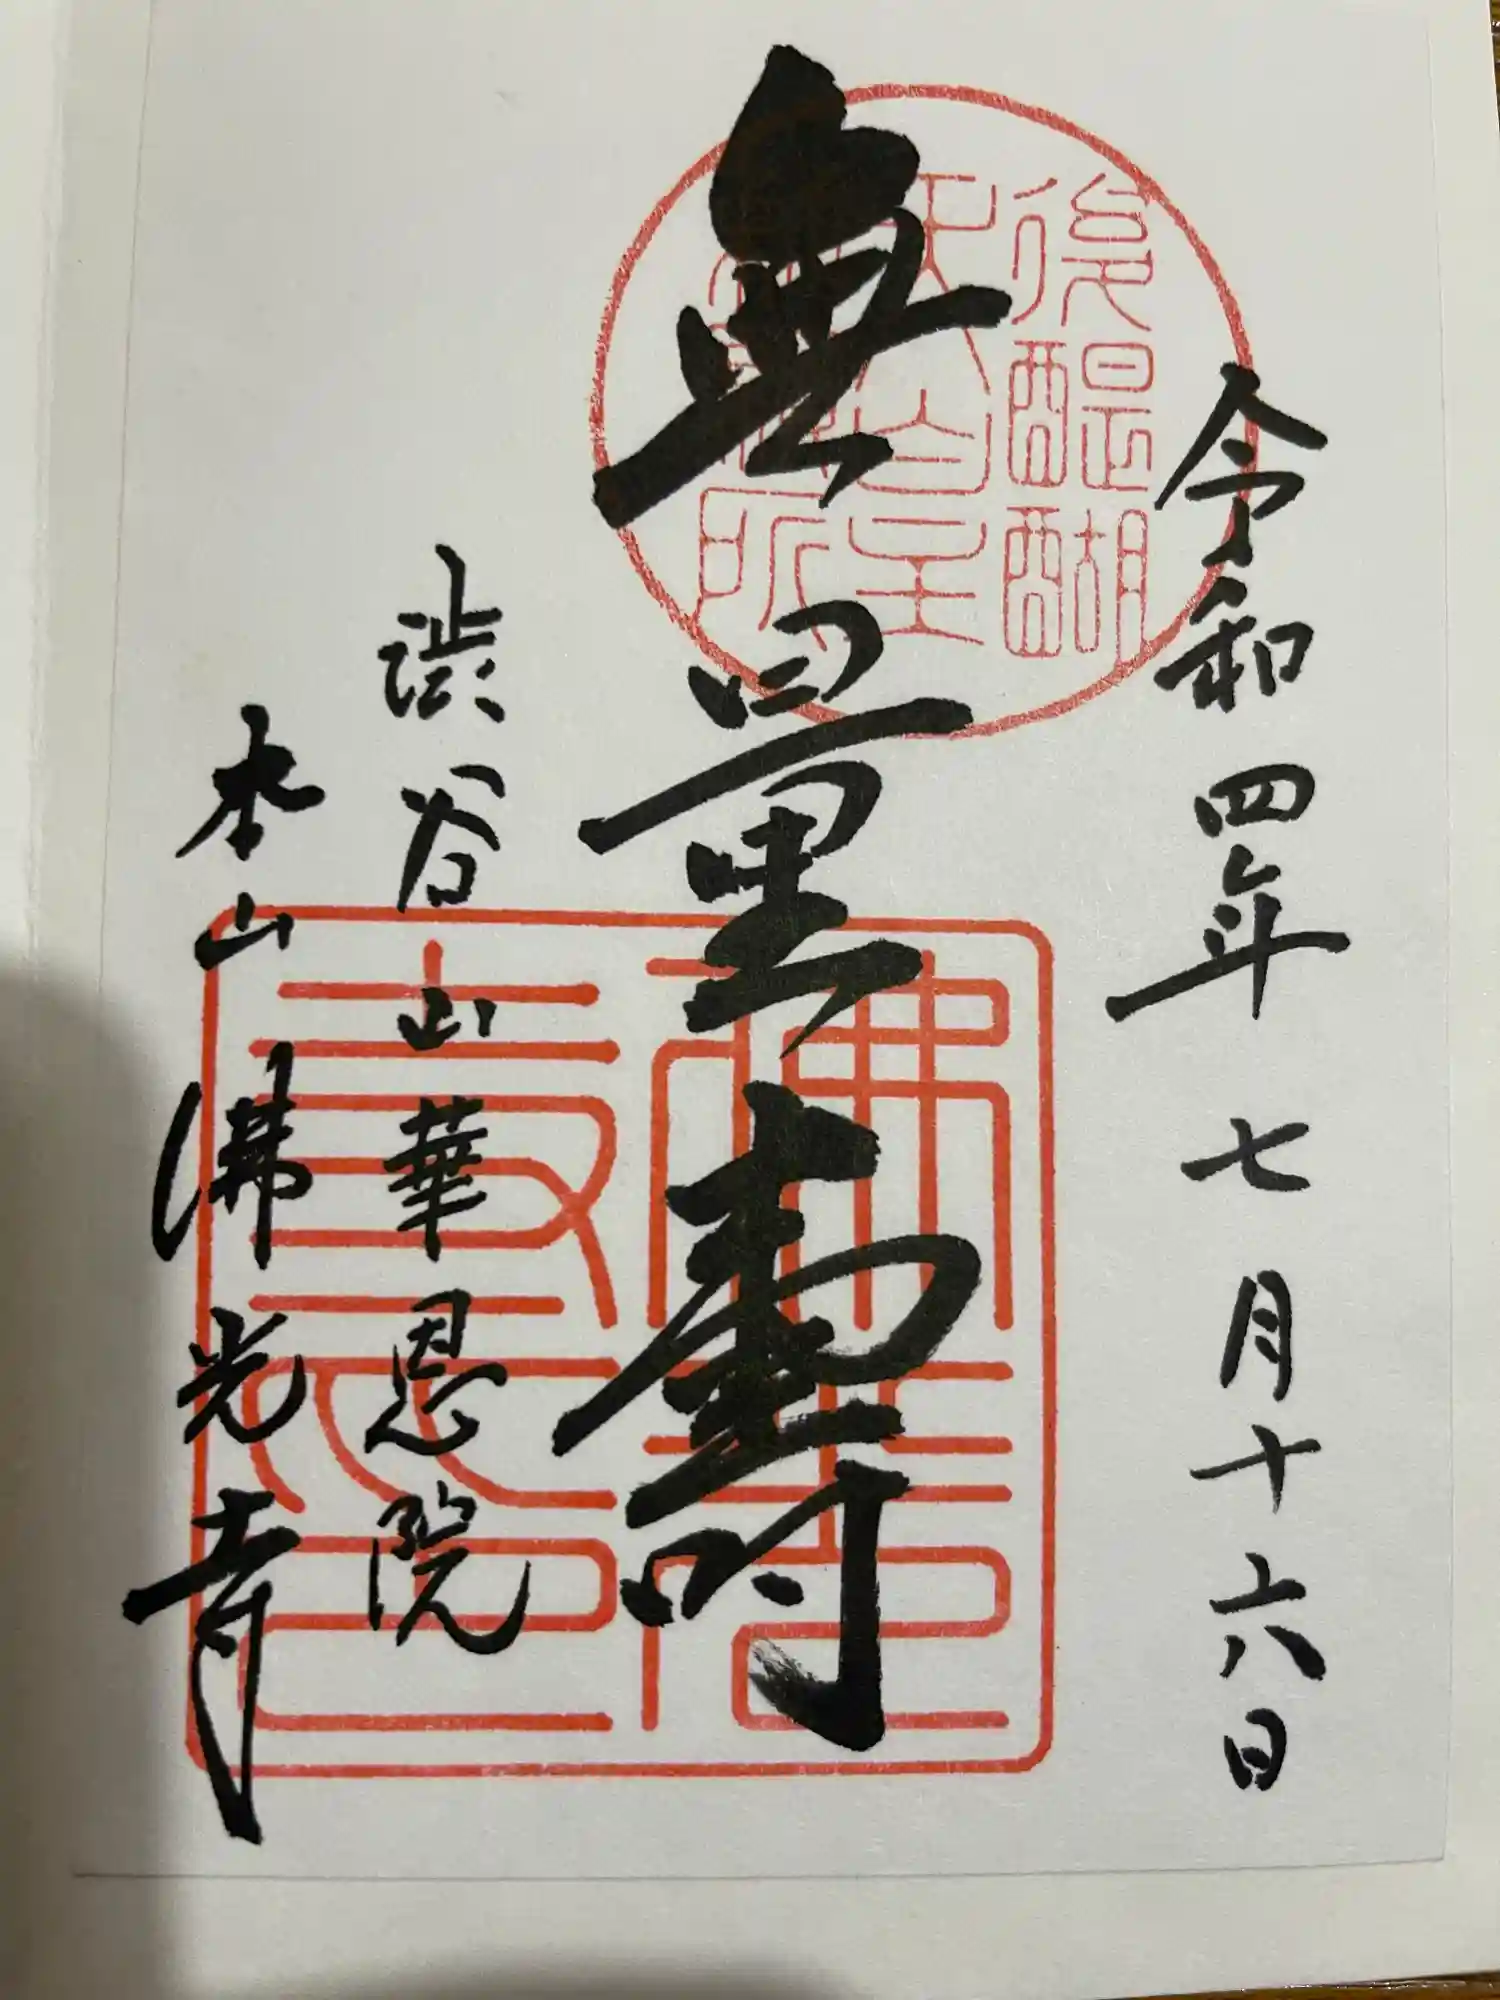 令和四年七月十六日
後醍醐
天皇
所
無量壽
渋谷山華恩院
本山佛光寺